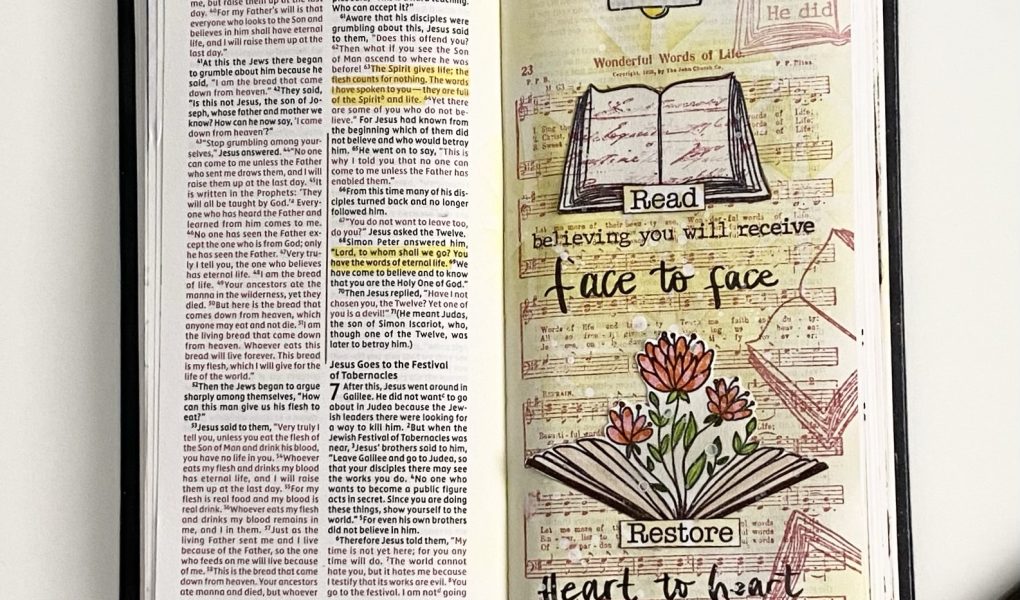 me, but raise them up at the last
day. 40For my Father's will is that
everyone who looks to the Son and
believes in him shall have eternal
life, and I will raise them up at the
last day."
41At this the Jews there began
to grumble about him because he
said, "I am the bread that came
down from heaven." 42They said,
"Is this not Jesus, the son of Jo-
seph, whose father and mother we
know? How can he now say, 'I came
down from heaven'?"
43"Stop grumbling among your-
selves," Jesus answered. 44"No one
can come to me unless the Father
who sent me draws them, and I will
raise them up at the last day. 45It
is written in the Prophets: 'They
will all be taught by God.'d Every-
one who has heard the Father and
learned from him comes to me.
46No one has seen the Father ex-
cept the one who is from God; only
he has seen the Father. 47Very tru-
ly I tell you, the one who believes
has eternal life. 48I am the bread
of life. 49Your ancestors ate the
manna in the wilderness, yet they
died. 50But here is the bread that
comes down from heaven, which
anyone may eat and not die. 51I am
the living bread that came down
from heaven. Whoever eats this
bread will live forever. This bread
is my flesh, which I will give for the
life of the world."
52Then the Jews began to argue
sharply among themselves, "How
can this man give us his flesh to
eat?"
53Jesus said to them, "Very truly I
tell you, unless you eat the flesh of
the Son of Man and drink his blood,
you have no life in you. 54Whoever
eats my flesh and drinks my blood
has eternal life, and I will raise
them up at the last day. 55For my
flesh is real food and my blood is
real drink. 56Whoever eats my flesh
and drinks my blood remains in
me, and I in them. 57Just as the
living Father sent me and I live
because of the Father, so the one
who feeds on me will live because
of me. 58This is the bread that came
down from heaven. Your ancestors
ate manna and died, but whoever
Who can accept it?"
61Aware that his disciples were
grumbling about this, Jesus said
to them, "Does this offend you?
62Then what if you see the Son
of Man ascend to where he was
before! 63The Spirit gives life; the
flesh counts for nothing. The words
I have spoken to you—they are full
of the Spirite and life. 64Yet there
are some of you who do not be-
lieve." For Jesus had known from
the beginning which of them did
not believe and who would betray
him. 65He went on to say, "This is
why I told you that no one can
come to me unless the Father has
enabled them."
66From this time many of his dis-
ciples turned back and no longer
followed him.
67"You do not want to leave too,
do you?" Jesus asked the Twelve.
68Simon Peter answered him,
"Lord, to whom shall we go? You
have the words of eternal life. 69We
have come to believe and to know
that you are the Holy One of God."
70Then Jesus replied, "Have I not
chosen you, the Twelve? Yet one of
you is a devil!" 71(He meant Judas,
the son of Simon Iscariot, who,
though one of the Twelve, was
later to betray him.)
Jesus Goes to the Festival
of Tabernacles
7 After this, Jesus went around in
Galilee. He did not wantc to go
about in Judea because the Jew-
ish leaders there were looking for
a way to kill him. 2But when the
Jewish Festival of Tabernacles was
near, 3Jesus' brothers said to him,
"Leave Galilee and go to Judea, so
that your disciples there may see
the works you do. 4No one who
wants to become a public figure
acts in secret. Since you are doing
these things, show yourself to the
world." 5For even his own brothers
did not believe in him.
6Therefore Jesus told them, "My
time is not yet here; for you any
time will do. 7The world cannot
hate you, but it hates me because
I testify that its works are evil. 8You
go to the festival. I am notd going
He did
Wonderful Words of Life
23
Copyright, 1925, by The John Church Co.
P. P. B.
P. P. Bliss.
Read
believing you will receive
face to face
Words of life and
REFRAIN.
Beauti-ful words
Restore
Heart to heart